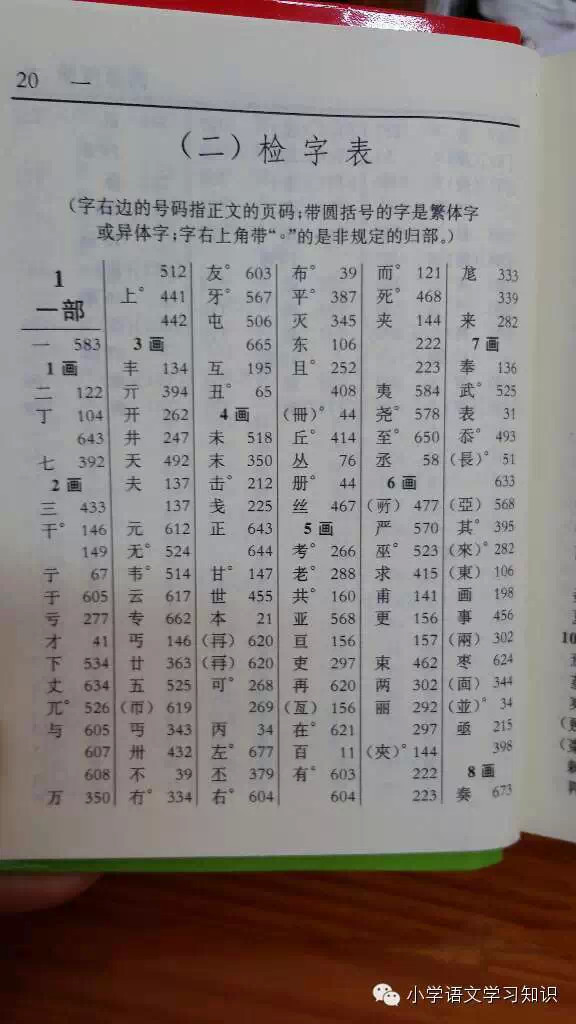 20 一
(二)检字表
(字右边的号码指正文的页码;带圆括号的字是繁体字
或异体字;字右上角带“°”的是非规定的归部。)
1
一部
一 583
1画
二 122
丁 104
643
七 392
2画
三 433
干° 146
149
亍 67
于 605
亏 277
才 41
下 534
丈 634
兀° 526
与 605
607
608
万 350
512
上° 441
442
3画
丰 134
亓 394
开 262
井 247
天 492
夫 137
137
元 612
无° 524
韦° 514
云 617
专 662
丐 146
廿 363
五 525
(帀) 619
丏 343
卅 432
不 39
冇° 334
友° 603
牙° 567
屯 506
665
互 195
丑° 65
4画
未 518
末 350
击° 212
戋 225
正 643
644
甘° 147
世 455
本 21
(再) 620
(再) 620
可° 268
269
丙 34
左° 677
丕 379
右° 604
布° 39
平° 387
灭 345
东 106
且° 252
408
(冊)° 44
丘° 414
丛 76
册° 44
丝 467
5画
考° 266
老° 288
共° 160
亚 568
亘 156
吏 297
再 620
(亙) 156
在° 621
百 11
有° 603
604
而° 121
死° 468
夹 144
222
223
夷 584
尧° 578
至° 650
丞 58
6画
(所) 477
严 570
巫° 523
求 415
甫 141
更 156
157
束 462
两 302
丽 292
297
(夾)° 144
222
223
尨 333
339
来 282
7画
奉 136
武° 525
表 31
忝° 493
(長)° 51
633
(亞) 568
其° 395
(來)° 282
(東) 106
画 198
事 456
(兩) 302
枣 624
(面) 344
(並)° 34
亟 215
398
8画
奏 673
小学语文学习知识